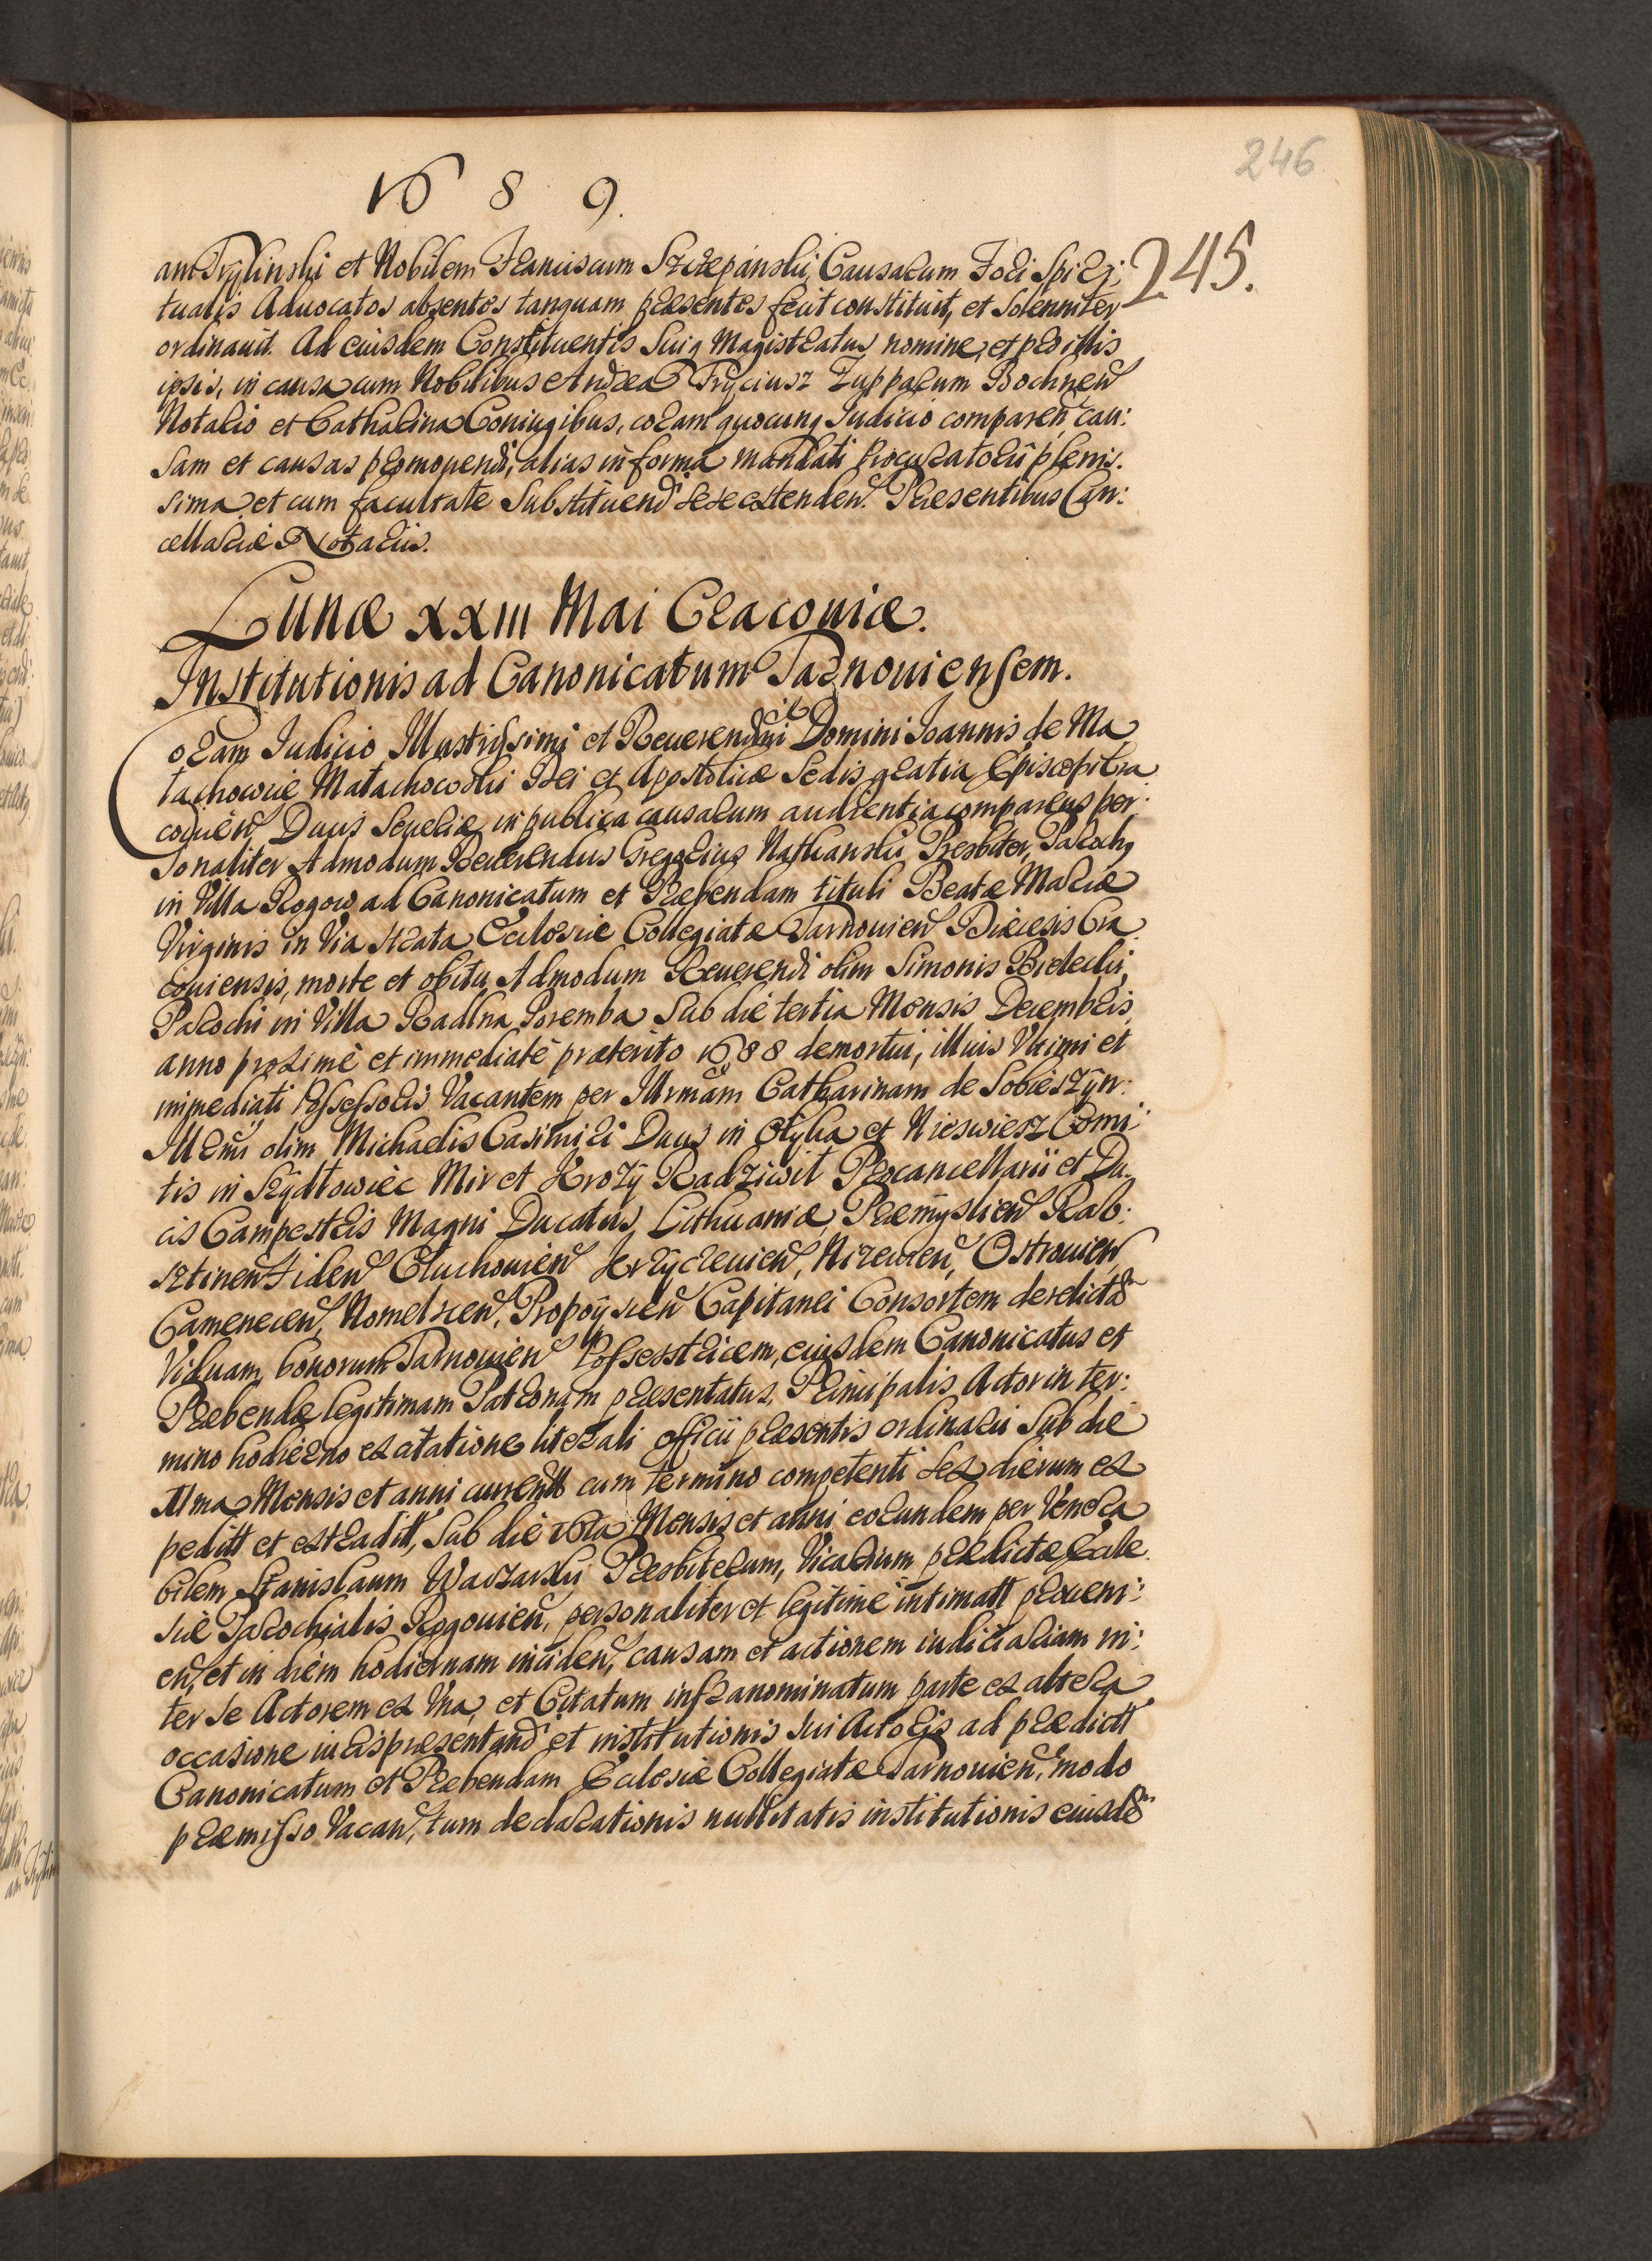 246
1689.
245.
am Trylinski et Nobilem Franciscum Szczepanski, Causarum Fori Spiri:
tualis Aduocatos absentes tanquam præsentes fecit constituit, et Solenniter
ordinauit. Ad eiusdem Constituentis Suiq Magistratus nomine, et pro illis
ipsis, in causa cum Nobilibus Andrea Fryciusz Zupparum Bochnen
Notario et Catharina Coniugibus, coram quocunq Iudicio comparen, cau:
sam et causas promouendi, alias in forma mandati Procuratorii plenis:
sima et cum facultate Substituendi sese extenden. Præsentibus Can:
cellariæ Notariis.
Lunæ XXIII Mai Cracouiæ.
Institutionis ad Canonicatum Tarnouiensem.
Coram Iudicio Illustrissimi et Reuerendissimi Domini Ioannis de Ma
łachowice Małachowski Dei et Apostolicæ Sedis gratia Episcopi Cra
couien, Ducis Seueriæ, in publica causarum audientia comparens per:
sonaliter Admodum Reuerendus Gregorius Nathanski, Presbiter, Paroch9
in Villa Rogow, ad Canonicatum et Præbendam tituli Beatæ Mariæ
Virginis in Via Strata Ecclesiæ Collegiatæ Tarnouien Diæcesis Cra
couiensis, morte et obitu Admodum Reuerendi olim Simonis Biedecki,
Parochi in Villa Radlna Poremba Sub die tertia Mensis Decembris,
anno proximè et immediatè præterito 1688 demortui, illius Vltimi et
immediati Possessoris Vacantem per Illrmam Catharinam de Sobieszyn:
Illrmi olim Michaelis Casimiri Ducis in Ołyka et Nieswiesz Comi:
tis in Szydłowiec Mir et Krozy Radziwił Procancellarii et Du:
cis Campestris Magni Ducatus Lithuaniæ, Præmyslien Rab:
sztinen Fiden Człuchouien Krzyczeuien, Nizeuien, Ostrouien
Camenecen, Homelscen, Propoyscen Capitanei Consortem derelictã
Viduam, bonorum Tarnouien Possesstricem, eiusdem Canonicatus et
Præbendæ legitimam Patronam præsentatus, Principalis Actor in ter:
mino hodierno ex citatione literali officii præsentis ordinarii Sub die
XIma Mensis et anni currentt cum termino competenti sex dierum ex
peditt et extraditt, Sub die 16ta Mensis et anni eorundem per Venera
bilem Stanislaum Warzarski Presbiterum, Vicarium prædictæ Eccle
siæ Parochialis Rogouien, personaliter et legitimè intimatt proueni:
en, et in diem hodiernam inciden, causam et actionem iudiciariam in:
ter se Actorem ex Vna, et Citatum infranominatum parte ex altera
occasione iuris præsentandi et institutionis sui Actoris ad prædictt
Canonicatum et Præbendam Ecclesiæ Collegiatæ Tarnouien, modo
præmisso Vacan, tum declarationis nullitatis institutionis eiusdẽ